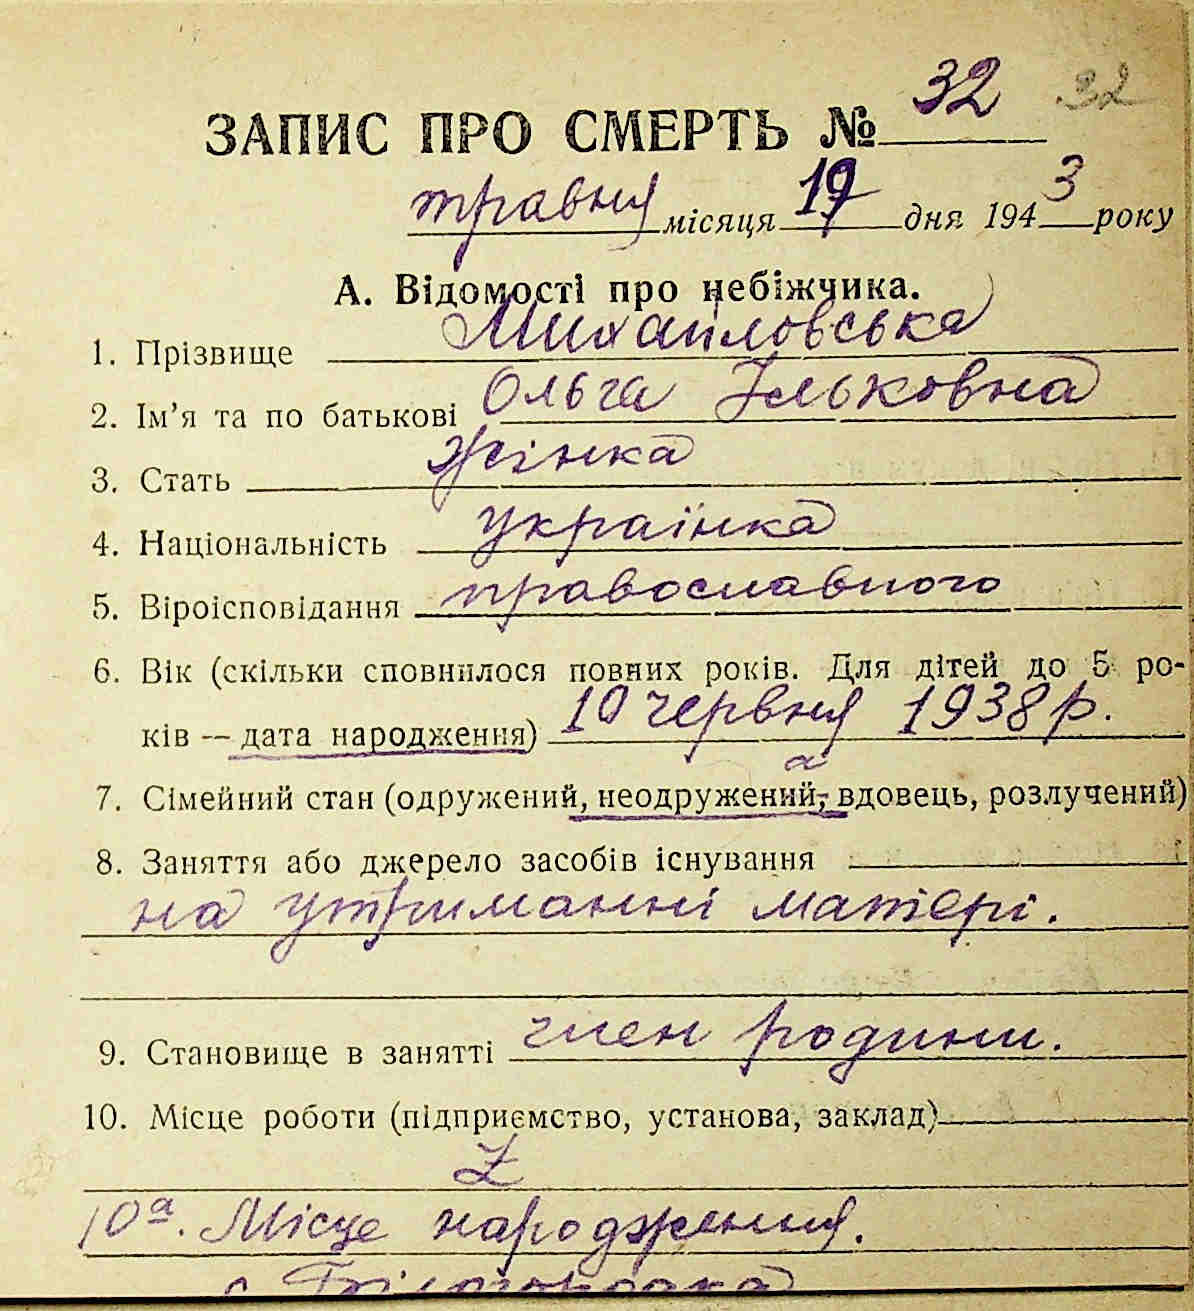 ЗАПИС ПРО СМЕРТЬ № 32 32
травня місяця 19 дня 1943 року
А. Відомості про небіжчика.
1. Прізвище Михайловська
2. Ім’я та по батькові Ольга Ільковна
3. Стать жінка
4. Національність українка
5. Віроісповідання православного
6. Вік (скільки сповнилося повних років. Для дітей до 5 ро-
ків — дата народження) 10 червня 1938 р.
а
7. Сімейний стан (одружений, неодружений, вдовець, розлучений)
8. Заняття або джерело засобів існування
на утриманні матері.
9. Становище в занятті член родини.
10. Місце роботи (підприємство, установа, заклад)
Z
10а. Місце народження.
с.